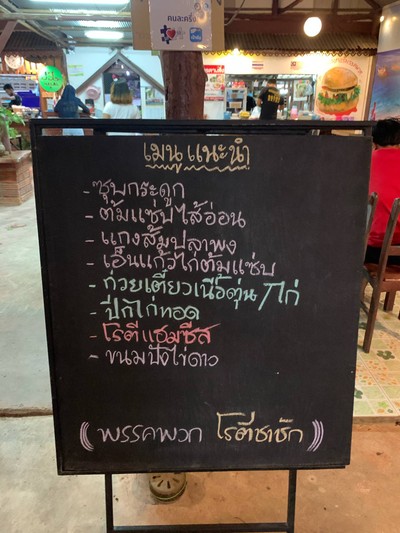 คนละครึ่ง
เมนูแนะนำ
- ซุบกระดูก
- ต้มแซ่บไส้อ่อน
- แกงส้มปลาพง
- เอ็นแก้วไก่ต้มแซ่บ
- ก๋วยเตี๋ยวเนื้อตุ๋น/ไก่
- ปีกไก่ทอด
- โรตีแฮมชีส
- ขนมปังไข่ดาว
(( พรรคพวก โรตีชาชัก ))